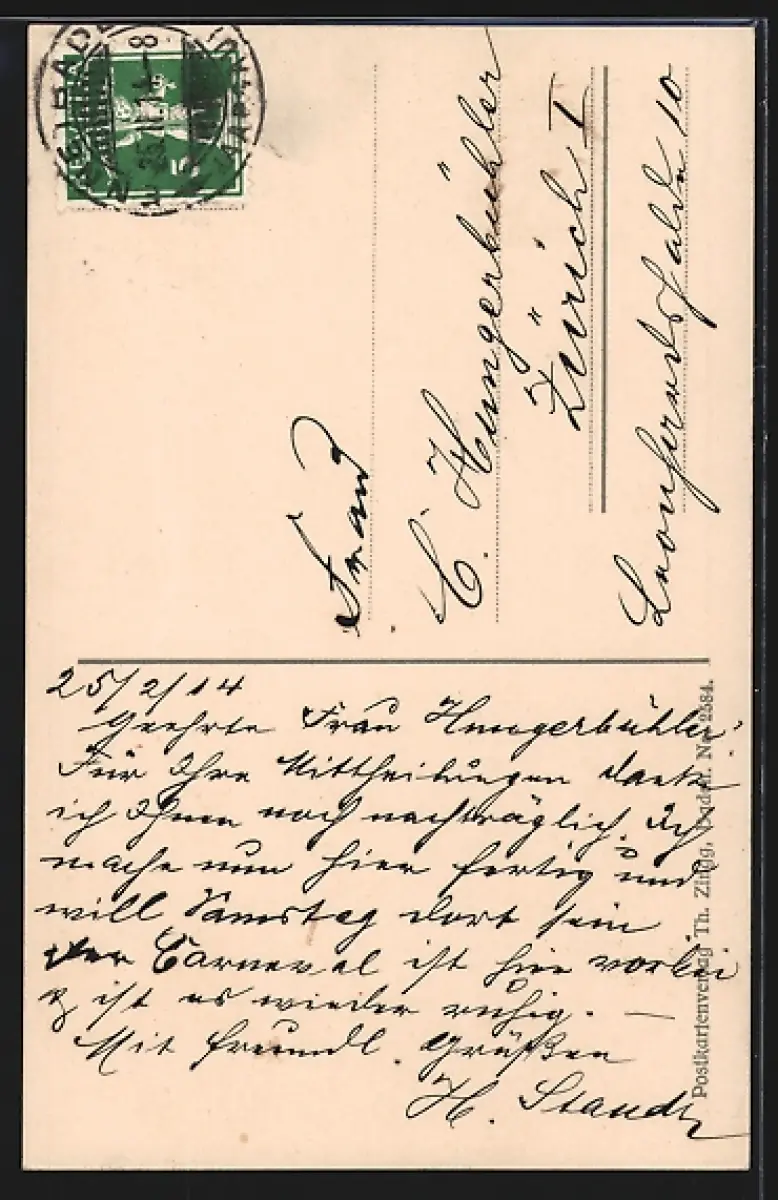 25/2/14
Geehrte Frau Hungerbühler!
Für Ihre Mittheilungen danke
ich Ihnen noch nachträglich. Ich
mache nun hier fertig und
will Samstag dort sein
der Carneval ist hier vorbei
& ist es wieder ruhig. —
Mit freundl. Grüßen
H.
Frau
C. Hungerbühler
Zürich I
10
Postkartenverlag Th. Zingg, Baden. No. 2584.
BADEN
25.II.14.-8
5